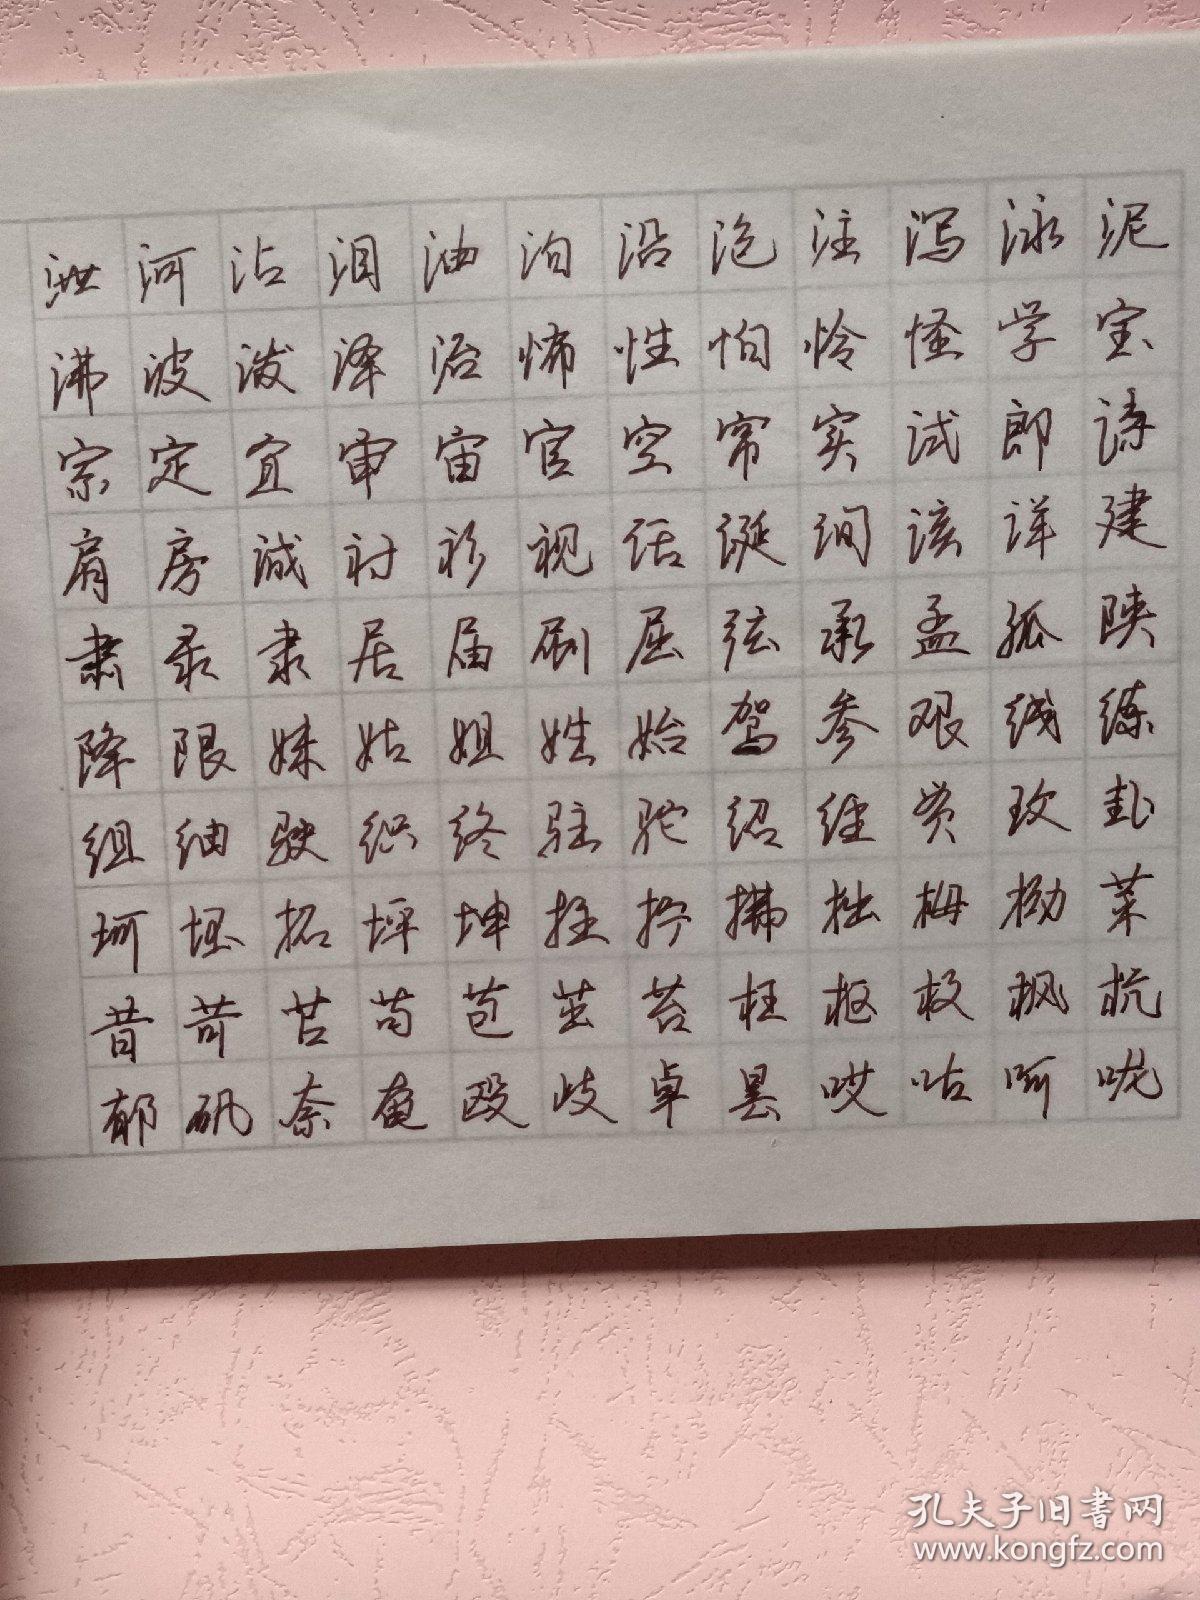 泄河沾泪油泊沿泡注泻泳泥
沸波泼泽治怖性怕怜怪学宝
宗定宜审宙官空帘实试郎诗
肩房诚衬衫视话诞询该详建
肃录隶居届刷屈弦承孟孤陕
降限妹姑姐姓始驾参艰线练
组细驶织终驻驼绍经贯玫卦
坷坯拓坪坤拄拧拂拙拇拗菜
昔苛苫苟苞茁苔枉枢枚枫杭
郁矾奈奄殴歧卓昙哎咕呵咙
孔夫子旧书网
www.kongfz.com